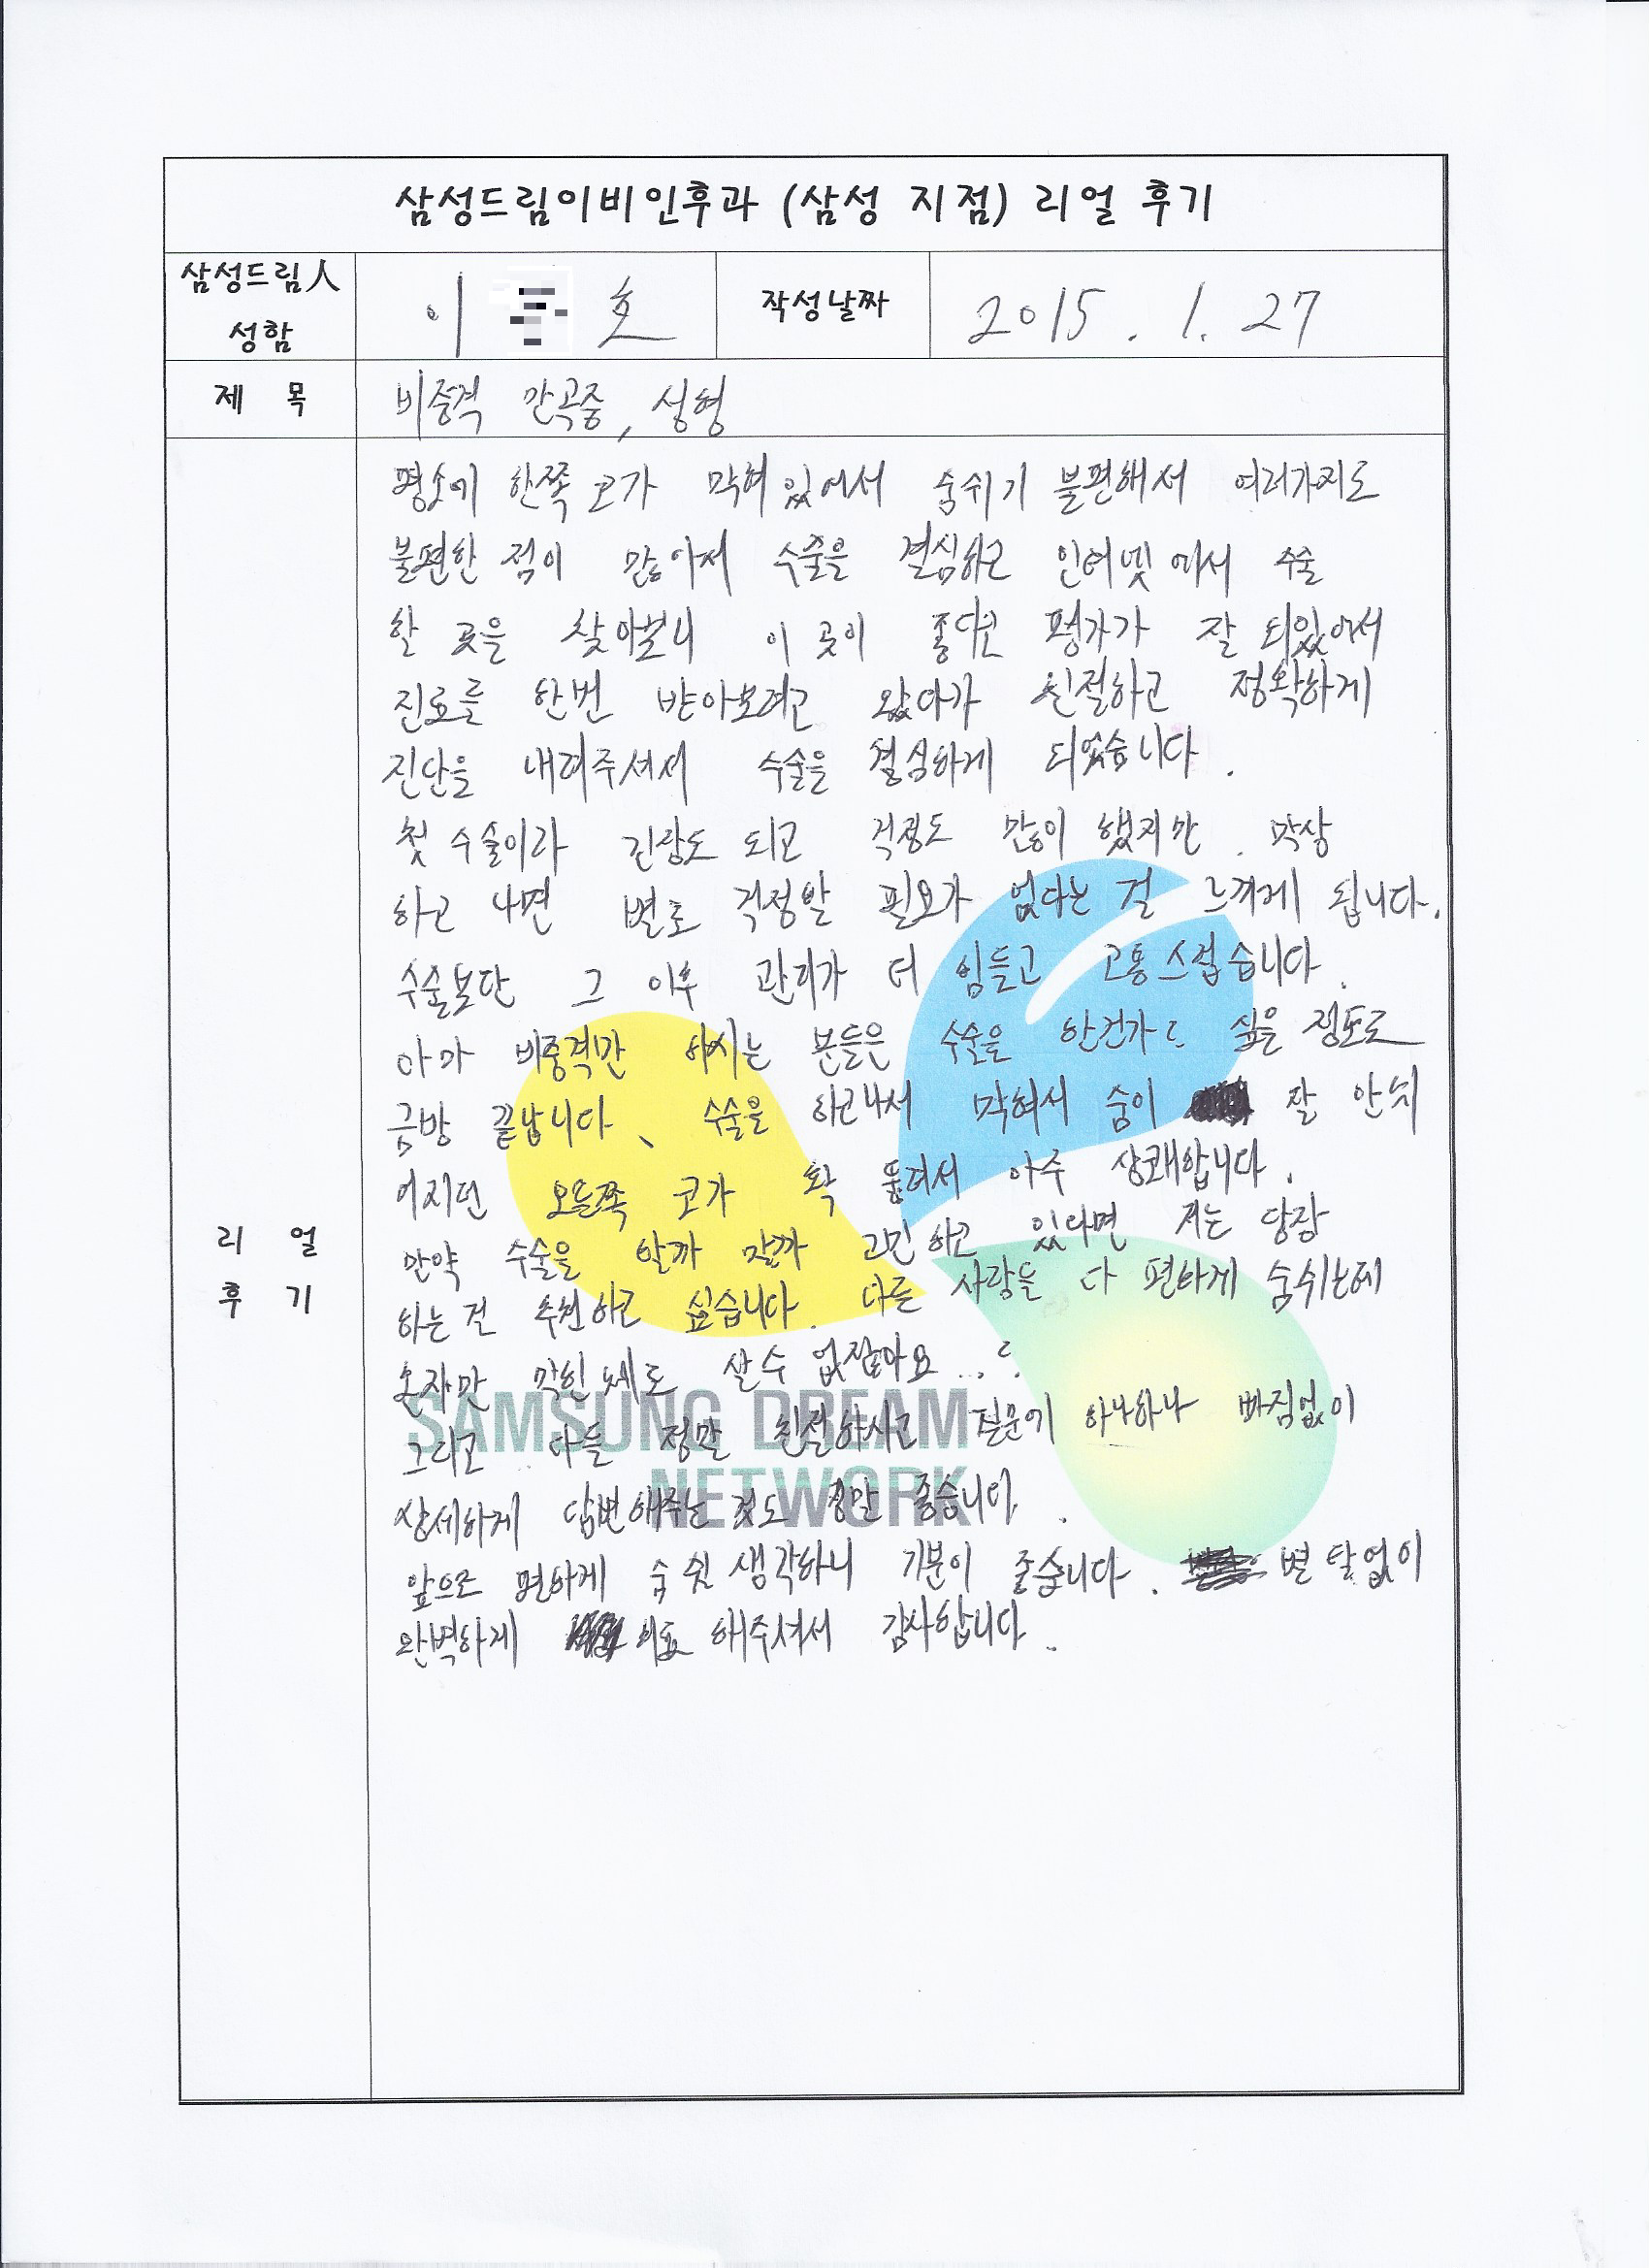 삼성드림이비인후과 (삼성 지점) 리얼 후기
삼성드림人
성함
이 호
작성날짜
2015. 1. 27
제 목
비중격 만곡증, 성형
평소에 한쪽 코가 막혀있어서 숨쉬기 불편해서 여러가지로
불편한 점이 많아서 수술을 결심하고 인터넷에서 수술
할 곳을 찾아보니 이 곳이 좋다고 평가가 잘 되있어서
진료를 한번 받아보려고 왔다가 친절하고 정확하게
진단을 내려주셔서 수술을 결심하게 되었습니다.
첫 수술이라 긴장도 되고 걱정도 많이 했지만. 막상
하고 나면 별로 걱정할 필요가 없다는 걸 느끼게 됩니다.
수술보단 그 이후 관리가 더 힘들고 고통스럽습니다.
아마 비중격만 하시는 분들은 수술을 한건가? 싶을 정도로
금방 끝납니다. 수술을 하고나서 막혀서 숨이 잘 안쉬
어지던 오른쪽 코가 확 뚫려서 아주 상쾌합니다.
만약 수술을 할까 말까 고민하고 있다면 저는 당장
하는걸 추천하고 싶습니다. 다른 사람들 다 편하게 숨쉬는데
혼자만 막힌채로 살수 없잖아요...?
그리고 다들 정말 친절하시고 질문에 하나하나 빠짐없이
상세하게 답변해주는 것도 정말 좋습니다.
앞으로 편하게 숨쉴 생각하니 기분이 좋습니다. 별 탈없이
완벽하게 치료 해주셔서 감사합니다.
리 얼
후 기
SAMSUNG DREAM
NETWORK